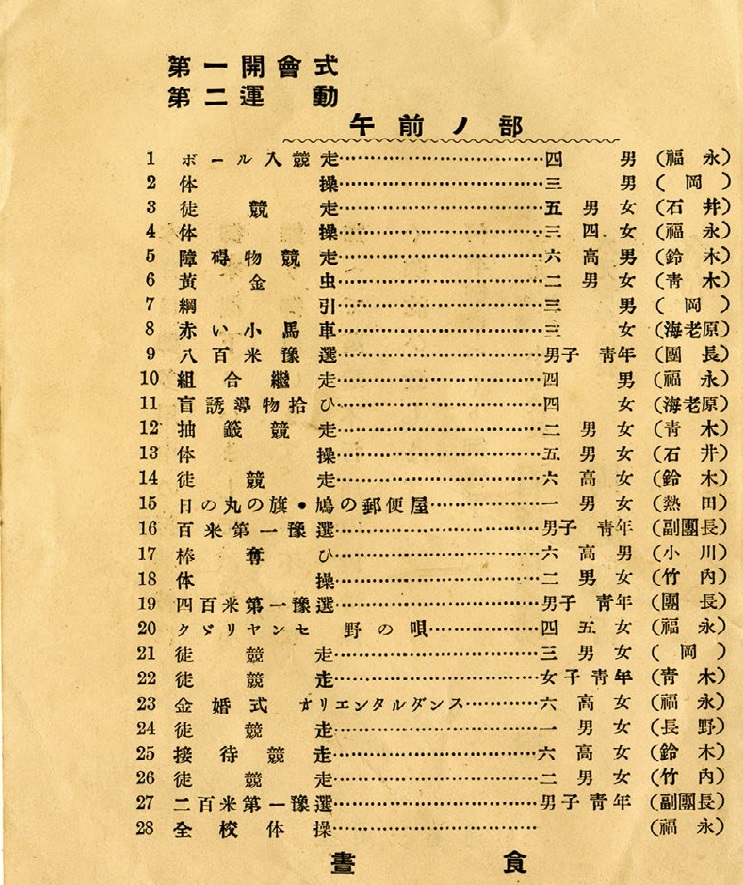 第一開會式
第二運動
午前ノ部
1 ボール入競走……四男(福永)
2 体操……三男(岡)
3 徒競走……五男女(石井)
4 体操……三四女(福永)
5 障碍物競走……六高男(鈴木)
6 黃金虫……二男女(靑木)
7 綱引……三男(岡)
8 赤い小馬車……三女(海老原)
9 八百米豫選……男子靑年(團長)
10 組合繼走……四男(福永)
11 盲誘導物拾ひ……四女(海老原)
12 抽籤競走……二男女(靑木)
13 体操……五男女(石井)
14 徒競走……六高女(鈴木)
15 日の丸の旗・鳩の郵便屋……一男女(熱田)
16 百米第一豫選……男子靑年(副團長)
17 棒奪ひ……六高男(小川)
18 体操……二男女(竹內)
19 四百米第一豫選……男子靑年(團長)
20 クヾリヤンセ 野の唄……四五女(福永)
21 徒競走……三男女(岡)
22 徒競走……女子靑年(靑木)
23 金婚式 オリエンタルダンス……六高女(福永)
24 徒競走……一男女(長野)
25 接待競走……六高女(鈴木)
26 徒競走……二男女(竹內)
27 二百米第一豫選……男子靑年(副團長)
28 全校体操……(福永)
晝食